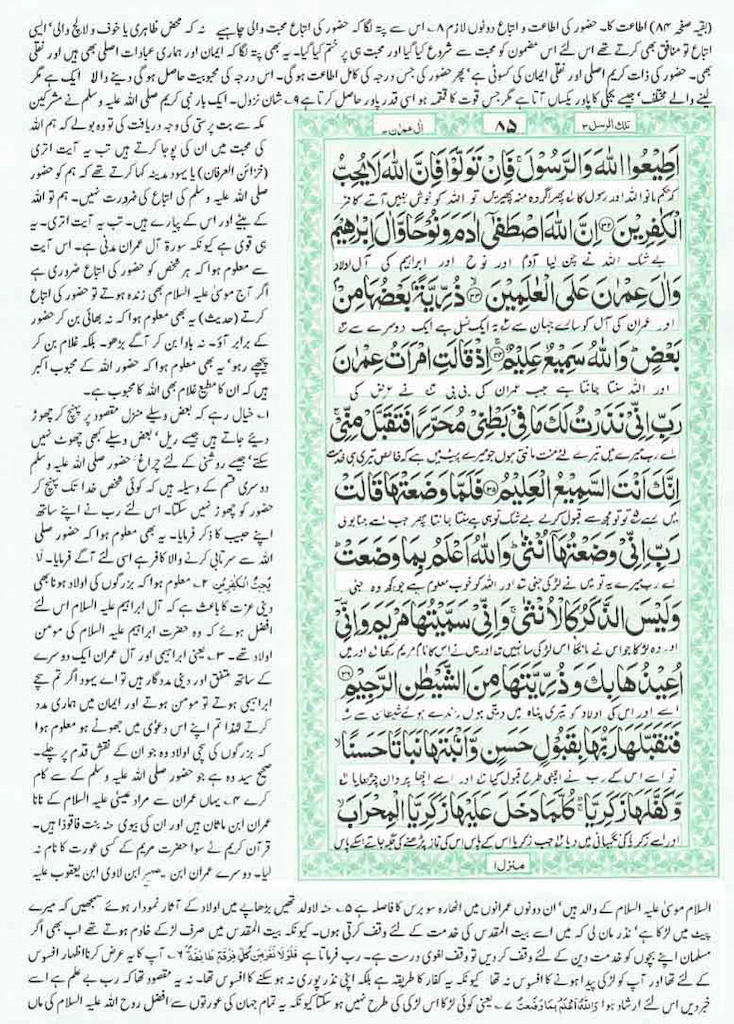 (بقیہ صفحہ ۸۴) اطاعت کا۔ حضور کی اطاعت و اتباع دونوں لازم ۸۔ اس سے پتہ لگا کہ حضور کی اتباع محبت والی چاہیے نہ کہ محض ظاہری یا خوف و لالچ والی' ایسی
اتباع تو منافق بھی کرتے تھے اس لئے اس مضمون کو محبت سے شروع کیا گیا اور محبت ہی پر ختم کیا گیا۔ یہ بھی پتہ لگا کہ ایمان اور ہماری عبادات اصلی بھی ہیں اور نقلی
بھی۔ حضور کی ذات کریم اصلی اور نقلی ایمان کی کسوٹی ہے' پھر حضور کی جس درجہ کی کامل اطاعت ہوگی۔ اس درجہ کی محبوبیت حاصل ہوگی دینے والا ایک ہے مگر
لینے والے مختلف' جیسے بجلی کا پاور یکساں آتا ہے مگر جس قوت کا قمقمہ ہو اسی قدر پاور حاصل کرتا ہے ۹۔ شان نزول۔ ایک بار نبی کریم صلی اللہ علیہ وسلم نے مشرکین
مکہ سے بت پرستی کی وجہ دریافت کی تو وہ بولے کہ ہم اللہ
کی محبت میں ان کی پوجا کرتے ہیں تب یہ آیت اتری
(خزائن العرفان) یا یہود مدینہ کہا کرتے تھے کہ ہم کو حضور
صلی اللہ علیہ وسلم کی اتباع کی ضرورت نہیں۔ ہم تو اللہ
کے بیٹے اور اس کے پیارے ہیں۔ تب یہ آیت اتری۔ یہ
ہی قوی ہے کیونکہ سورۃ آل عمران مدنی ہے۔ اس آیت
سے معلوم ہوا کہ ہر شخص کو حضور کی اتباع ضروری ہے
اگر آج موسیٰ علیہ السلام بھی زندہ ہوتے تو حضور کی اتباع
کرتے (حدیث) یہ بھی معلوم ہوا کہ نہ بھائی بن کر حضور
کے برابر آؤ۔ نہ باوا بن کر آگے بڑھو۔ بلکہ غلام بن کر
پیچھے رہو' یہ بھی معلوم ہوا کہ حضور اللہ کے محبوب اکبر
ہیں کہ ان کا مطیع غلام بھی اللہ کا محبوب ہے۔
۱۔ خیال رہے کہ بعض وسیلے منزل مقصود پر پہنچ کر چھوڑ
دیئے جاتے ہیں جیسے ریل' بعض وسیلے کبھی چھوٹ نہیں
سکتے' جیسے روشنی کے لئے چراغ' حضور صلی اللہ علیہ وسلم
دوسری قسم کے وسیلہ ہیں کہ کوئی شخص خدا تک پہنچ کر
حضور کو چھوڑ نہیں سکتا۔ اس لئے رب نے اپنے ساتھ
اپنے حبیب کا ذکر فرمایا۔ یہ بھی معلوم ہوا کہ حضور صلی
اللہ سے سرتابی کرنے والا کافر ہے اسی لئے آگے فرمایا۔ لَا
يُحِبُّ الْكٰفِرِيْنَ ۲۔ معلوم ہوا کہ بزرگوں کی اولاد ہونا بھی
دینی عزت کا باعث ہے کہ آل ابراہیم علیہ السلام اس لئے
افضل ہوئے کہ وہ حضرت ابراہیم علیہ السلام کی مومن
اولاد تھے۔ ۳۔ یعنی ابراہیمی اور آل عمران ایک دوسرے
کے ساتھ متفق اور دینی مددگار ہیں تو اے یہود اگر تم سچے
ابراہیمی ہوتے تو مومن ہوتے اور ایمان میں ہماری مدد
کرتے لہٰذا تم اپنے اس دعوٰی میں جھوٹے ہو معلوم ہوا
کہ بزرگوں کی سچی اولاد وہ جو ان کے نقش قدم پر چلے۔
صحیح سید وہ ہے جو حضور صلی اللہ علیہ وسلم کے سے کام
کرے ۴۔ یہاں عمران سے مراد عیسیٰ علیہ السلام کے نانا
عمران ابن ماثان ہیں اور ان کی بیوی حنہ بنت فاقوذا ہیں۔
قرآن کریم نے سوا حضرت مریم کے کسی عورت کا نام نہ
لیا۔ دوسرے عمران ابن یصہر ابن لاوی ابن یعقوب علیہ
تلك الرسل ۳
۸۵
اٰل عمرٰن ۳
اَطِيْعُوا اللّٰهَ وَالرَّسُوْلَ فَاِنْ تَوَلَّوْا فَاِنَّ اللّٰهَ لَا يُحِبُّ
کہ حکم مانو اللہ اور رسول کا پھر اگر وہ منہ پھیریں تو اللہ کو خوش نہیں آتے کافر
الْكٰفِرِيْنَ ۳۲ اِنَّ اللّٰهَ اصْطَفٰى اٰدَمَ وَنُوْحًا وَّاٰلَ اِبْرٰهِيْمَ
بے شک اللہ نے چن لیا آدم اور نوح اور ابراہیم کی آل اولاد
وَاٰلَ عِمْرٰنَ عَلَى الْعٰلَمِيْنَ ۳۳ ذُرِّيَّةًۢ بَعْضُهَا مِنْۢ
اور عمران کی آل کو سارے جہان سے یہ ایک نسل ہے ایک دوسرے سے
بَعْضٍ وَاللّٰهُ سَمِيْعٌ عَلِيْمٌ ۳۴ اِذْ قَالَتِ امْرَاَتُ عِمْرٰنَ
اور اللہ سنتا جانتا ہے جب عمران کی بی بی نے عرض کی
رَبِّ اِنِّيْ نَذَرْتُ لَكَ مَا فِيْ بَطْنِيْ مُحَرَّرًا فَتَقَبَّلْ مِنِّيْ
اے رب میرے میں تیرے لئے منت مانتی ہوں جو میرے پیٹ میں ہے کہ خالص تیری ہی خدمت
اِنَّكَ اَنْتَ السَّمِيْعُ الْعَلِيْمُ ۳۵ فَلَمَّا وَضَعَتْهَا قَالَتْ
میں رہے تو تو مجھ سے قبول کرلے بے شک تو ہی ہے سنتا جانتا پھر جب اسے جنا بولی
رَبِّ اِنِّيْ وَضَعْتُهَا اُنْثٰى وَاللّٰهُ اَعْلَمُ بِمَا وَضَعَتْ
اے رب میرے یہ تو میں نے لڑکی جنی اور اللہ کو خوب معلوم ہے جو کچھ وہ جنی
وَلَيْسَ الذَّكَرُ كَالْاُنْثٰى وَاِنِّيْ سَمَّيْتُهَا مَرْيَمَ وَاِنِّيْ
اور وہ لڑکا جو اس نے مانگا اس لڑکی سا نہیں اور میں نے اس کا نام مریم رکھا اور میں
اُعِيْذُهَا بِكَ وَذُرِّيَّتَهَا مِنَ الشَّيْطٰنِ الرَّجِيْمِ ۳۶
اسے اور اس کی اولاد کو تیری پناہ میں دیتی ہوں راندے ہوئے شیطان سے
فَتَقَبَّلَهَا رَبُّهَا بِقَبُوْلٍ حَسَنٍ وَّاَنْۢبَتَهَا نَبَاتًا حَسَنًا
تو اسے اس کے رب نے اچھی طرح قبول کیا اور اسے اچھا پروان چڑھایا
وَّكَفَّلَهَا زَكَرِيَّا كُلَّمَا دَخَلَ عَلَيْهَا زَكَرِيَّا الْمِحْرَابَ
اور اسے زکریا کی نگہبانی میں دیا جب زکریا اس کے پاس اس کی نماز پڑھنے کی جگہ جاتے اسکے پاس
منزل ۱
السلام موسیٰ علیہ السلام کے والد ہیں' ان دونوں عمرانوں میں اٹھارہ سو برس کا فاصلہ ہے ۵۔ حنہ لاولد تھیں بڑھاپے میں اولاد کے آثار نمودار ہوئے سمجھیں کہ میرے
پیٹ میں لڑکا ہے' نذر مان لی کہ میں اسے بیت المقدس میں خدمت کے لئے وقف کرتی ہوں۔ کیونکہ بیت المقدس میں صرف لڑکے خادم ہوتے تھے اب بھی اگر
مسلمان اپنے بچوں کو خدمت دین کے لئے وقف کردیں تو وقف اقوی درست ہے۔ رب فرماتا ہے فَلَوْلَا نَفَرَ مِنْ كُلِّ فِرْقَةٍ طَآئِفَةٌ ۶۔ آپ کا یہ عرض کرنا اظہار افسوس
کے لئے تھا اور آپ کو لڑکی پیدا ہونے کا افسوس نہ تھا کیونکہ یہ کفار کا طریقہ ہے بلکہ اپنی نذر پوری نہ ہو سکنے کا افسوس تھا۔ نہ یہ مقصود تھا کہ رب بے علم ہے اسے
خبر دیں اس لئے ارشاد ہوا وَاللّٰهُ اَعْلَمُ بِمَا وَضَعَتْ ۷۔ یعنی کوئی لڑکا اس لڑکی کی طرح نہیں ہو سکتا کیونکہ یہ تمام جہان کی عورتوں سے افضل روح اللہ علیہ السلام کی ماں